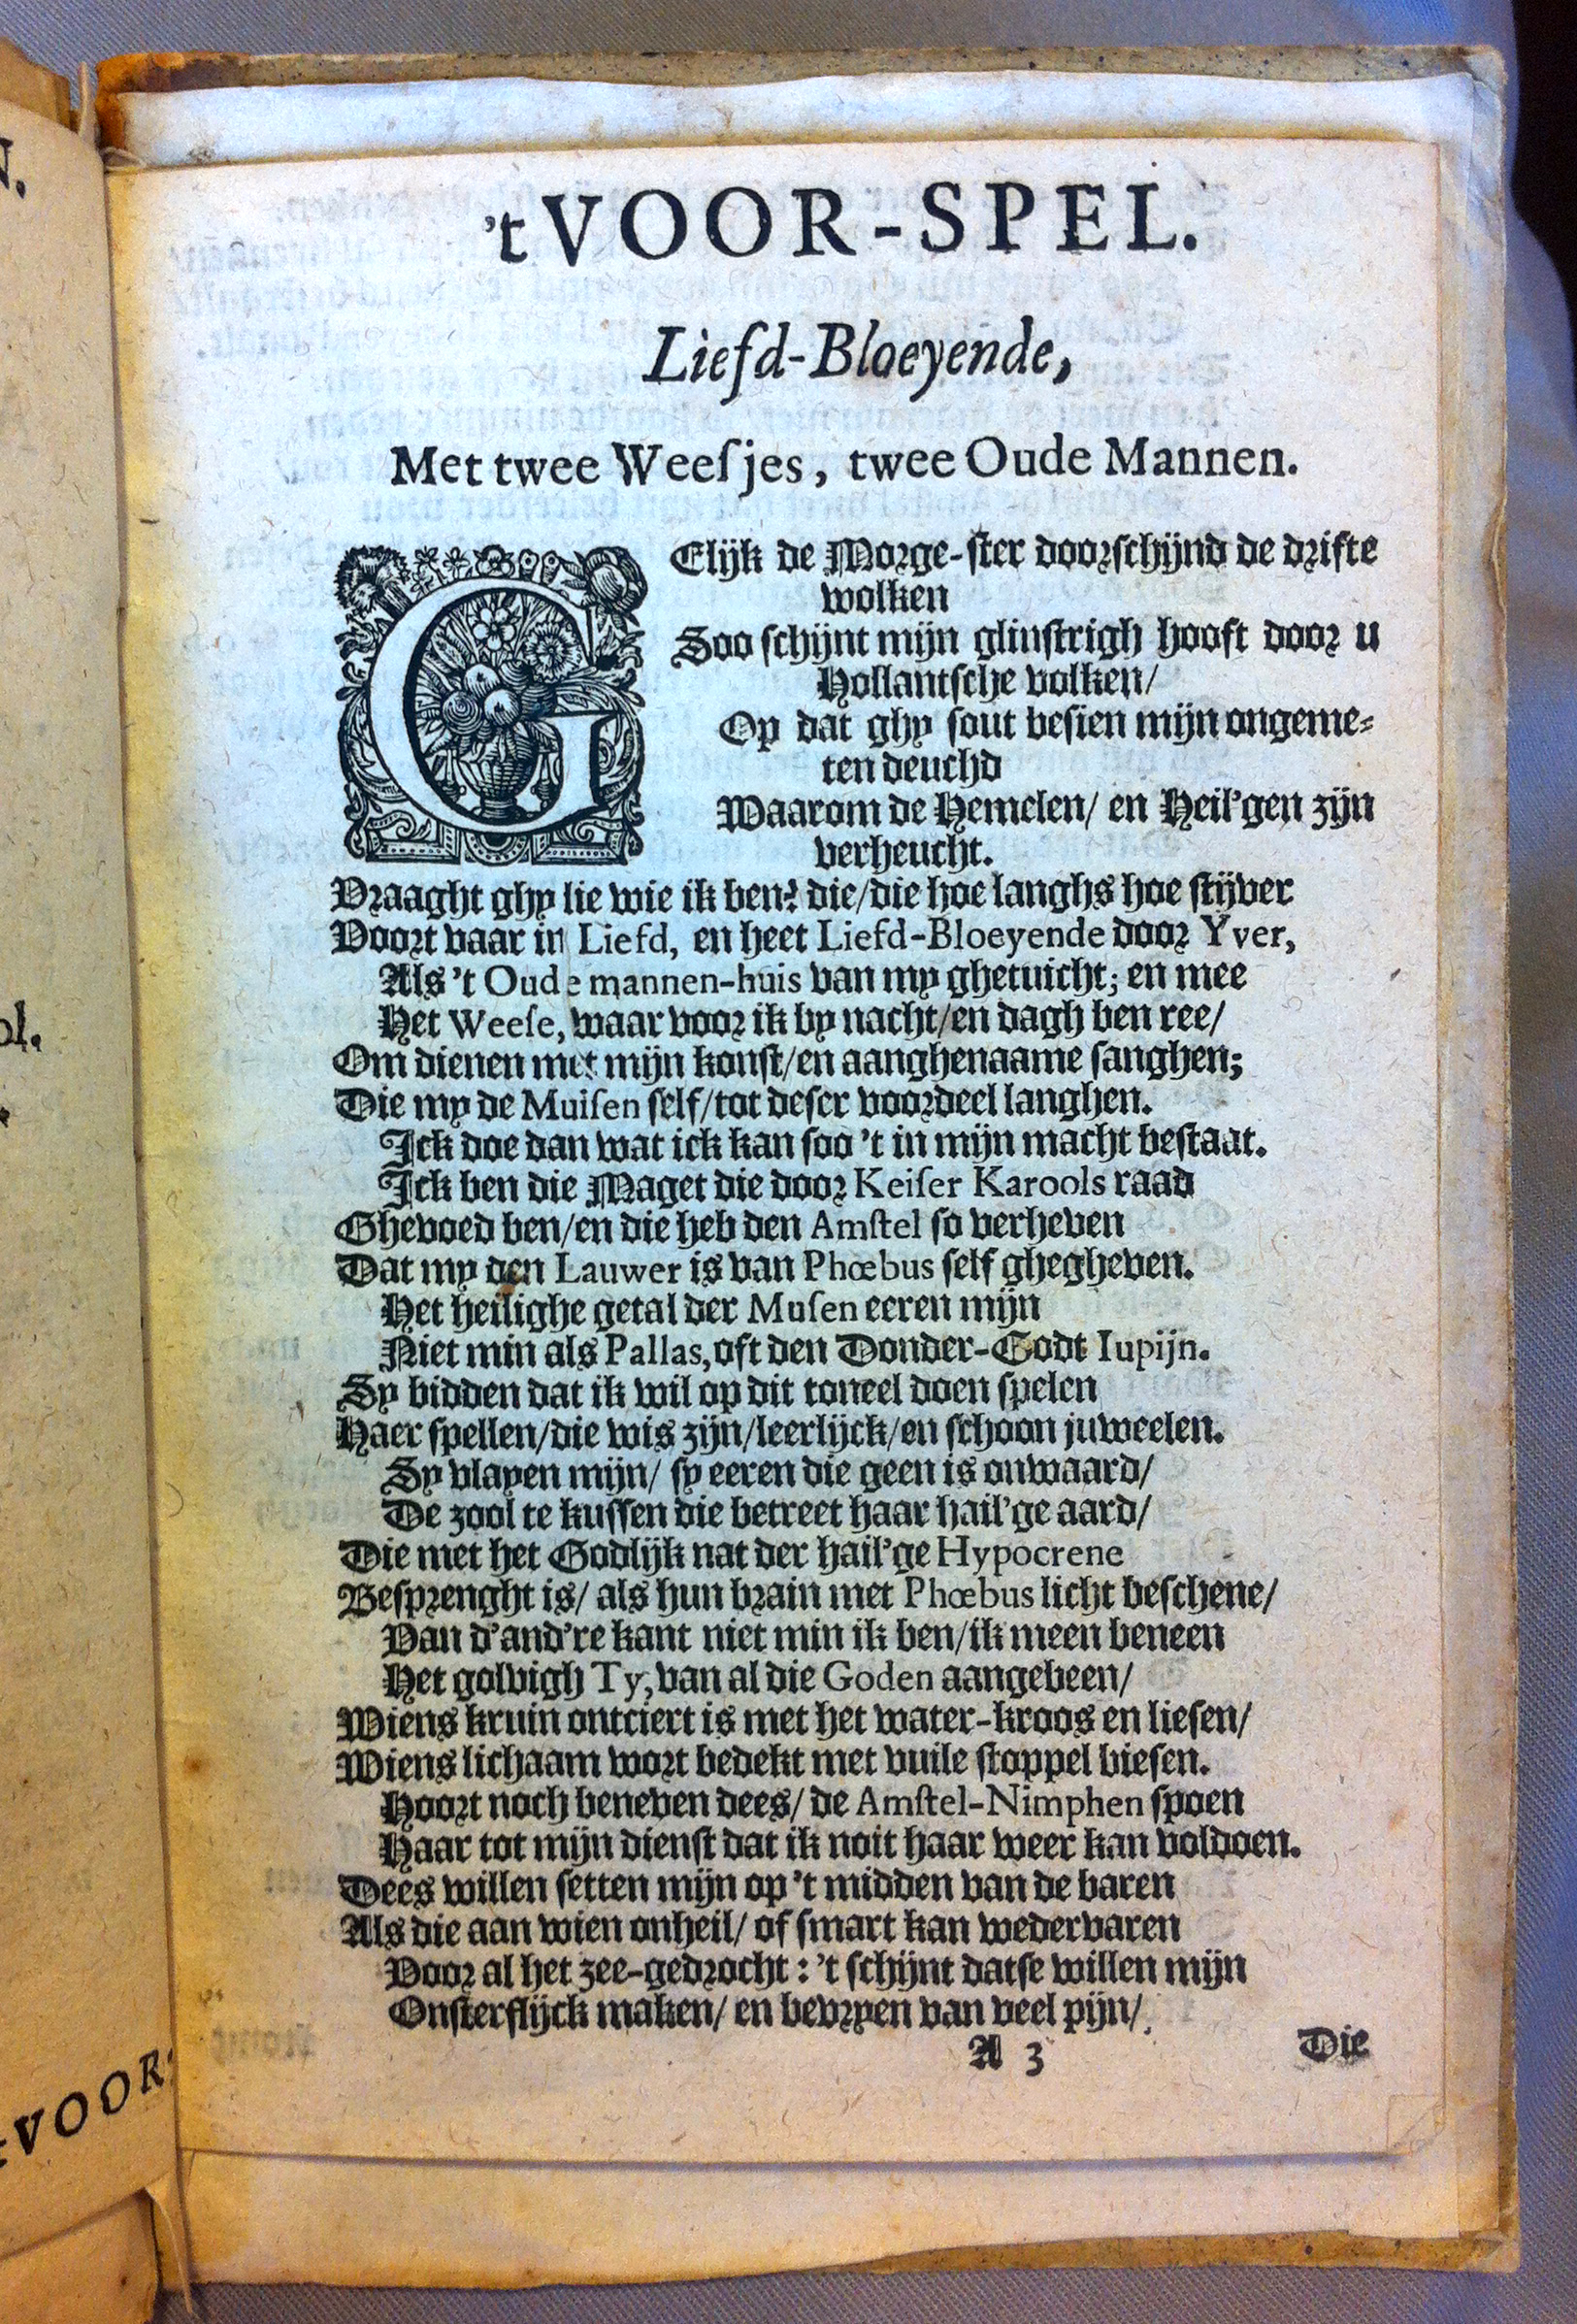 'tVOOR-SPEL.
Liefd-Bloeyende,
Met twee Weeſjes, twee Oude Mannen.
GElijk de Morge-ster doorschijnd de drifte
wolken
Soo schijnt mijn glinstrigh hooft door u
Hollantsche volken/
Op dat ghy sout besien mijn ongeme-
ten deuchd
Waarom de Hemelen/ en Heil'gen zijn
verheucht.
Vraaght ghy lie wie ik ben? die/die hoe langhs hoe stijver
Voort vaar in Liefd, en heet Liefd-Bloeyende door Yver,
Als 't Oude mannen-huis van my ghetuicht; en mee
Het Weeſe, waar voor ik by nacht/en dagh ben ree/
Om dienen met mijn konst/en aanghenaame sanghen;
Die my de Muiſen self/tot deser voordeel langhen.
Ick doe dan wat ick kan soo 't in mijn macht bestaat.
Ick ben die Maget die door Keiſer Karools raad
Ghevoed ben/en die heb den Amſtel so verheven
Dat my den Lauwer is van Phœbus self ghegheven.
Het heilighe getal der Muſen eeren mijn
Niet min als Pallas, oft den Donder-Godt Iupijn.
Sy bidden dat ik wil op dit toneel doen spelen
Haer spellen/die wis zijn/leerlijck/en schoon juweelen.
Sy vlayen mijn/ sy eeren die geen is onwaard/
De zool te kussen die betreet haar hail'ge aard/
Die met het Godlijk nat der hail'ge Hypocrene
Besprenght is/ als hun brain met Phœbus licht beschene/
Van d'and're kant niet min ik ben/ik meen beneen
Het golvigh Ty, van al die Goden aangebeen/
Wiens kruin ontciert is met het water-kroos en liesen/
Wiens lichaam wort bedekt met vuile stoppel biesen.
Hoort noch beneven dees/ de Amſtel-Nimphen spoen
Haar tot mijn dienst dat ik noit haar weer kan voldoen.
Dees willen setten mijn op 't midden van de baren
Als die aan wien onheil/ of smart kan wedervaren
Door al het zee-gedrocht: 't schijnt datse willen mijn
Onsterflijck maken/ en bevryen van veel pijn/
A 3
Die
N.
ol.
tVOOR-